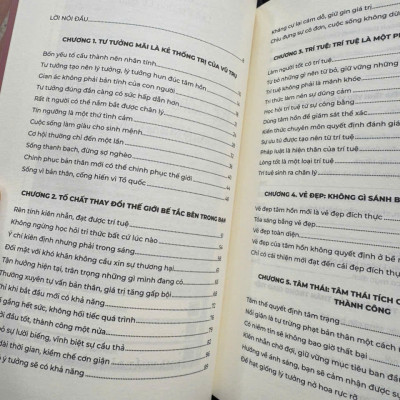 LỜI NÓI ĐẦU
CHƯƠNG 1. TƯ TƯỞNG MÃI LÀ KẺ THỐNG TRỊ CỦA VŨ TRỤ
Bốn yếu tố cấu thành nên nhân tính
Tư tưởng tạo nên lý tưởng, lý tưởng hun đúc tâm hồn
Gian ác không phải bản tính của con người
Tư tưởng đúng đắn càng có sức hấp dẫn hơn
Rất ít người có thể nắm bắt được chân lý
Tín ngưỡng là một thứ tình cảm
Cuộc sống làm giàu cho sinh mệnh
Cơ hội thường chỉ đến một lần
Sống thanh bạch, đừng sợ nghèo
Chinh phục bản thân mới có thể chinh phục thế giới
Sống vì bản thân, cống hiến vì Tổ quốc
CHƯƠNG 2. TỐ CHẤT THAY ĐỔI THẾ GIỚI BẾ TẮC BÊN TRONG BẠN
Rèn tính kiên nhẫn, đạt được trí tuệ
Không ngừng học hỏi tri thức bất cứ lúc nào
Ý chí kiên định nhưng phải trong sáng
Đối mặt với khó khăn không cầu xin sự thương hại
Tận hưởng hiện tại, trân trọng những gì mình đang có
Thường xuyên tự vấn bản thân, giá trị tăng gấp bội
Chỉ khi bắt đầu mới có khả năng
gắng hết sức, không hối tiếc quá trình
đầu tốt, thành công một nửa
bỏ sự lười biếng, vĩnh biệt sự cẩu thả
dài thời gian, kiềm chế cơn giận
ý tưởng sẽ có khả năng
Không cự lại cám dỗ, giữ gìn giá
Chịu đựng sự cô đơn, cuộc sống không
CHƯƠNG 3. TRÍ TUỆ: TRÍ TUỆ LÀ MỘT
Làm người tốt có trí tuệ
Từ bỏ những gì nên từ bỏ, giữ vững những
Trí tuệ không phải là mánh khóe
Tri thức làm nên sự dũng cảm
Học hỏi trí tuệ từ sự công bằng
Dùng tâm hồn để giám sát thể xác
Kiến thức chuyên môn quyết định đánh giá
Sự ưu tú được tạo nên từ trí tuệ
Pháp luật là hiện thân của trí tuệ
Lòng tốt là một loại trí tuệ
Trí tuệ sinh ra chân lý
CHƯƠNG 4. VẺ ĐẸP: KHÔNG GÌ SÁNH B
Vẻ đẹp tâm hồn mới là vẻ đẹp đích thực
Tỏa sáng bằng vẻ đẹp
Vẻ đẹp toàn diện
Vẻ đẹp của tâm hồn không quyết định ở bề
Chỉ có cái thiện mới đạt đến cái đẹp đích thực
CHƯƠNG 5. TÂM THÁI: TÂM THÁI TÍCH C
THÀNH CÔNG
Tâm thế quyết định tâm trạng
Nổi giận là tự trừng phạt bản thân một cách
Có niềm tin sẽ không bao giờ thất bại
Kiên nhẫn chờ đợi, giữ vững mục tiêu ban đầu
Hướng về ánh sáng, bạn sẽ cảm nhận được
Để hạt giống lý tưởng nở hoa rực rỡ